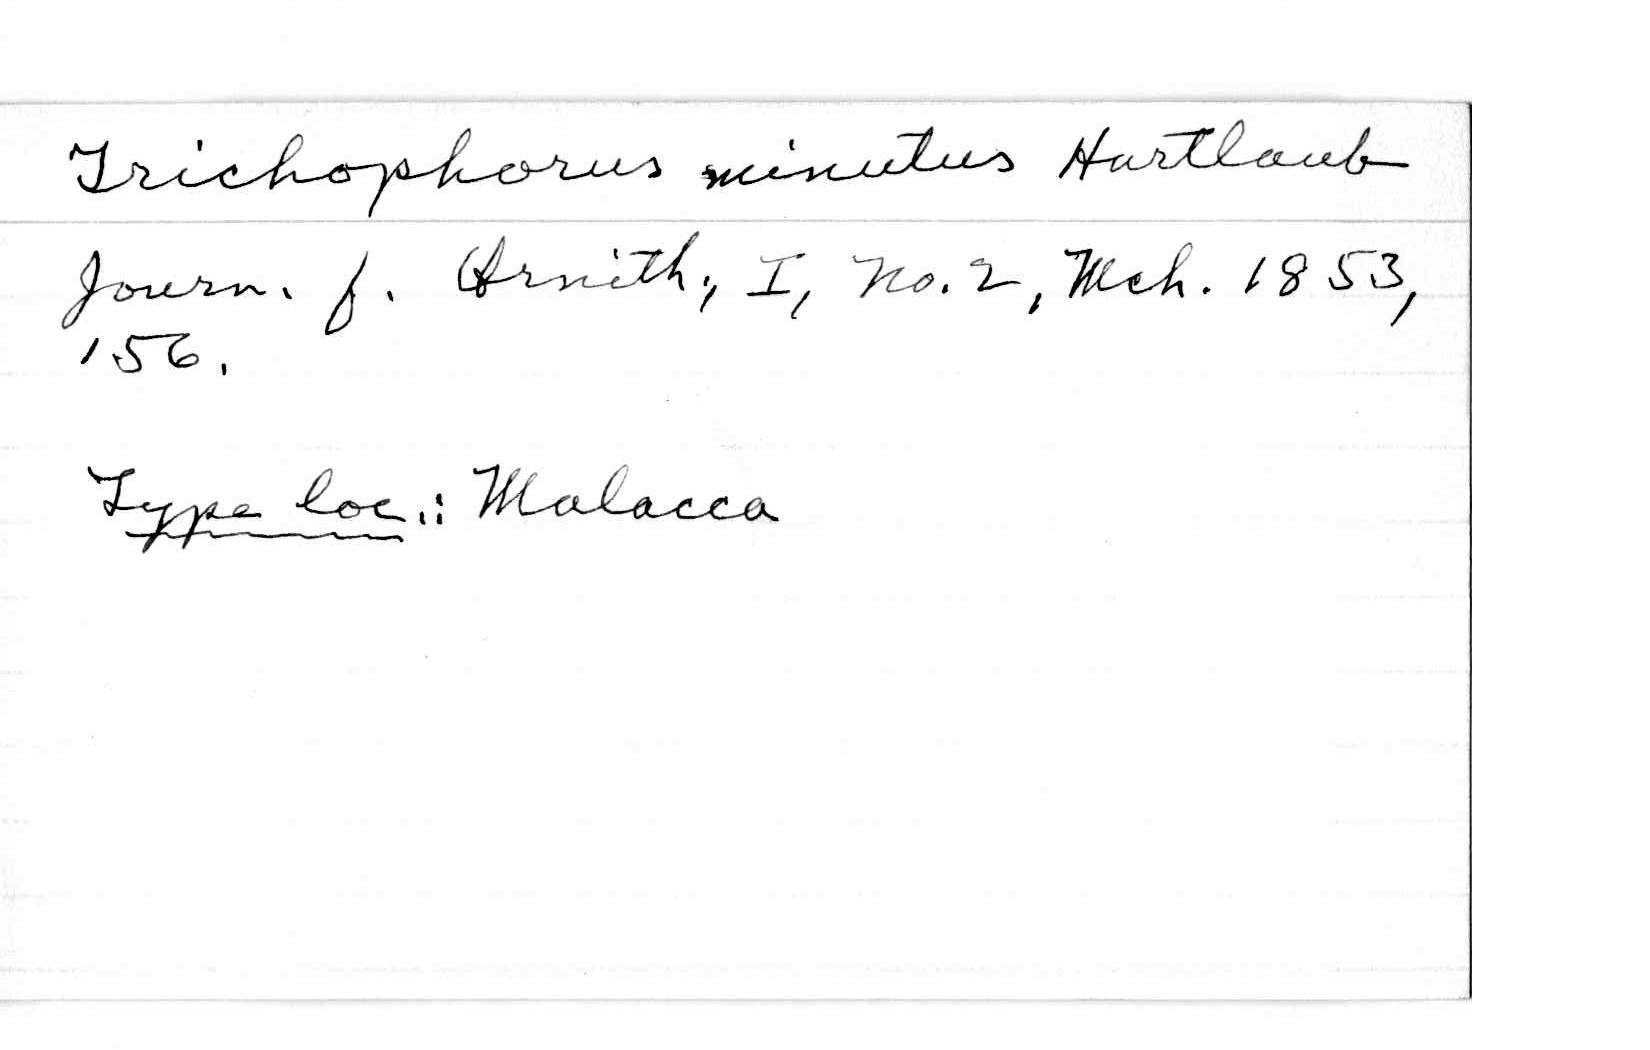 Trichophorus minutus Hartlaub
Journ. f. Ornith., I, No. 2, Mch. 1853,
156.
Type loc.: Malacca